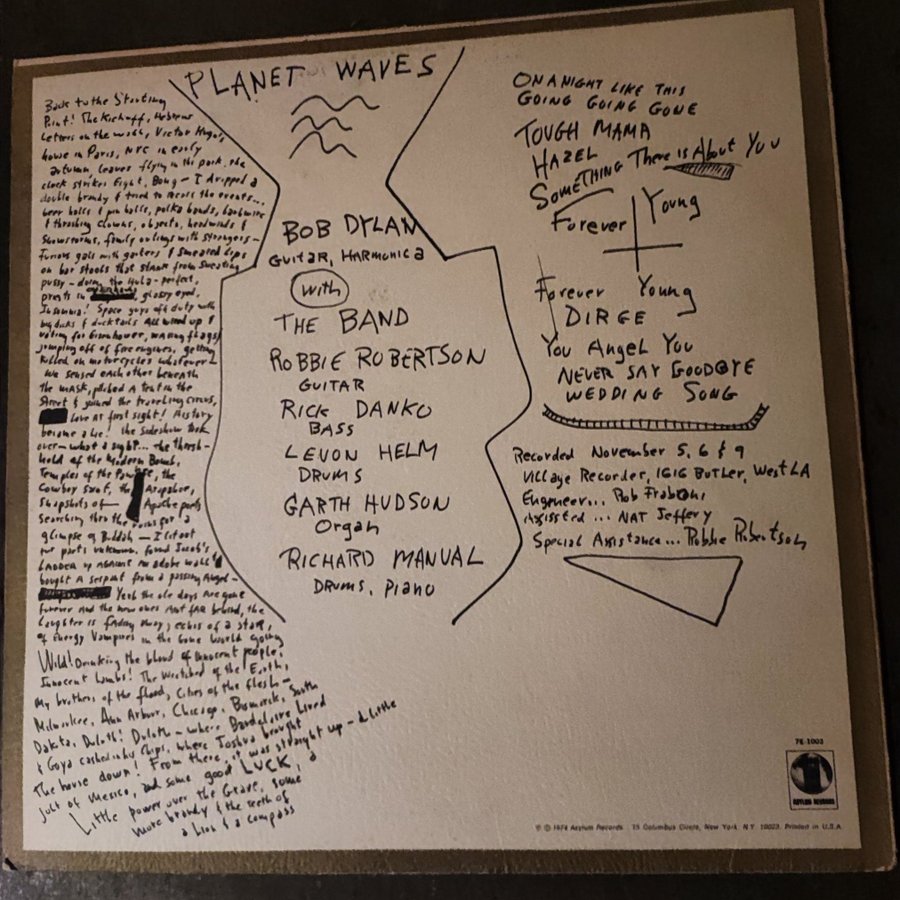 PLANET WAVES
Back to the Starting
Point! The Kickoff, Hebrew
Letters on the wall, Victor Hugo's
house in Paris, NYC in early
autumn, leaves flying in the park, the
clock strikes Eight, Bong - I dropped a
double brandy & tried to recall the events...
beer halls & pin balls, polka bands, barbwire
& thrashing clowns, objects, headwinds &
Snowstorms, family outings with strangers -
Furious gals with garters & smeared lips
on bar stools that stank from sweating
pussy - doing the Hula - perfect,
priests in glassy eyed,
Insomnia! Space guys off duty with
big dicks & ducktails All wired up &
voting for Eisenhower, waving flags,
jumping off of fire engines, getting
killed on motorcycles whatever -
We sensed each other beneath
the MASK, pitched A tent in the
Street & joined the traveling circus,
love At first sight! History
became a lie! the sideshow took
over - what a sight... the thresh-
hold of the Modern Bomb,
Temples of the Pawnee, the
Cowboy Saint, the Arapahoe,
Snapshots of Apache poets
Searching thru the ruins for a
glimpse of Buddah - I lit out
for parts unknown, found Jacob's
LADDER up AGAINST An adobe wall &
bought A serpent from a passing Angel -
Yeah the ole days Are gone
forever And the new ones Aint fAR behind, the
Laughter is fAding away, echos of a staR,
of Energy Vampires in the Gone World going
Wild! Drinking the blood of innocent people,
Innocent Lambs! The Wretched of the Earth,
My brothers of the flood, Cities of the flesh -
Milwaukee, Ann Arbor, Chicago, Bismarck, South
Dakota, Duluth! Duluth - where Baudelaire Lived
& Goya cashed in his Chips, where Joshua brought
The house down! From there, it was straight up - A Little
jolt of Mexico, and some good LUCK, a
Little power over the Grave, some
more brandy & the teeth of
a Lion & a compass
BOB DYLAN
GUITAR, HARMONICA
with
THE BAND
ROBBIE ROBERTSON
GUITAR
RICK DANKO
BASS
LEVON HELM
DRUMS
GARTH HUDSON
Organ
RICHARD MANUAL
DRUMS, PIANO
ON A NIGHT LIKE THIS
GOING GOING GONE
TOUGH MAMA
HAZEL
SOMETHING There is About You
Forever Young
Forever Young
DIRGE
You Angel You
NEVER SAY GOODBYE
WEDDING SONG
Recorded November 5, 6 & 9
Village Recorder, 1616 BUTLER, West LA
Engineer... Rob Fraboni
Assissted ... NAT Jeffery
Special Assistance... Robbie Robertson
7E-1003
ASYLUM RECORDS
℗ © 1974 Asylum Records 15 Columbus Circle, New York, N.Y. 10023. Printed in U.S.A.